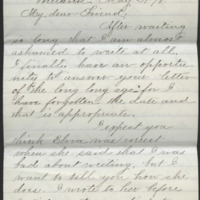 My dear Friend,
After waiting
so long that I am almost
ashamed to write at all.
I finally have an opportu
nity to answer your letter
of "the long long ago" for I
have forgotten the date and
that is appropriate.
I expect you
think Elva was correct
when she said that I was
bad about writing. but I
want to tell you how she
does. I wrote to her before